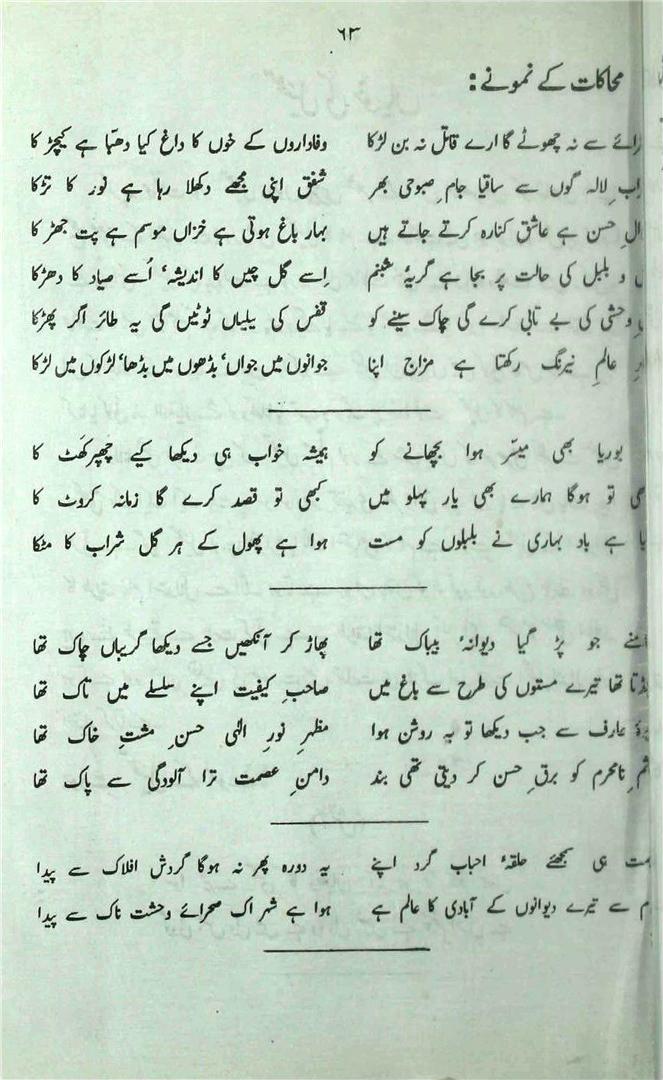 ٦٣
محاکات کے نمونے:
سے نہ چھوٹے گا ارے قاتل نہ بن لڑکا وفاداروں کے خوں کا داغ کیا دھبّا ہے کیچڑ کا
لالہ گوں سے ساقیا جامِ صبوحی بھر شفق اپنی مجھے دکھلا رہا ہے نور کا تڑکا
حسن ہے عاشق کنارہ کرتے جاتے ہیں بہار باغ ہوتی ہے خزاں موسم ہے پت جھڑ کا
و بلبل کی حالت پر بجا ہے گریۂ شبنم اِسے گل چیں کا اندیشہ‘ اُسے صیاد کا دھڑکا
وحشی کی بے تابی کرے گی چاک سینے کو قفس کی یتلیاں ٹوٹیں گی یہ طائر اگر پھڑکا
عالمِ نیرنگ رکھتا ہے مزاج اپنا جوانوں میں جواں‘ بڈھوں میں بڈھا‘ لڑکوں میں لڑکا
بوریا بھی میسّر ہوا بچھانے کو ہمیشہ خواب ہی دیکھا کیے چھپرکھٹ کا
تو ہوگا ہمارے بھی یار پہلو میں کبھی تو قصد کرے گا زمانہ کروٹ کا
ہے باد بہاری نے بلبلوں کو مست ہوا ہے پھول کے ہر گل شراب کا مٹکا
جو پڑ گیا دیوانۂ بیباک تھا پھاڑ کر آنکھیں جسے دیکھا گریباں چاک تھا
تھا تیرے مستوں کی طرح سے باغ میں صاحبِ کیفیت اپنے سلسلے میں تاک تھا
عارف سے جب دیکھا تو یہ روشن ہوا مظہرِ نورِ الٰہی حسنِ مشتِ خاک تھا
نامحرم کو برقِ حسن کر دیتی تھی بند دامنِ عصمت ترا آلودگی سے پاک تھا
ہی سمجھئے حلقۂ احباب گرد اپنے یہ دورہ پھر نہ ہوگا گردش افلاک سے پیدا
سے تیرے دیوانوں کے آبادی کا عالم ہے ہوا ہے شہر اک صحرائے وحشت ناک سے پیدا